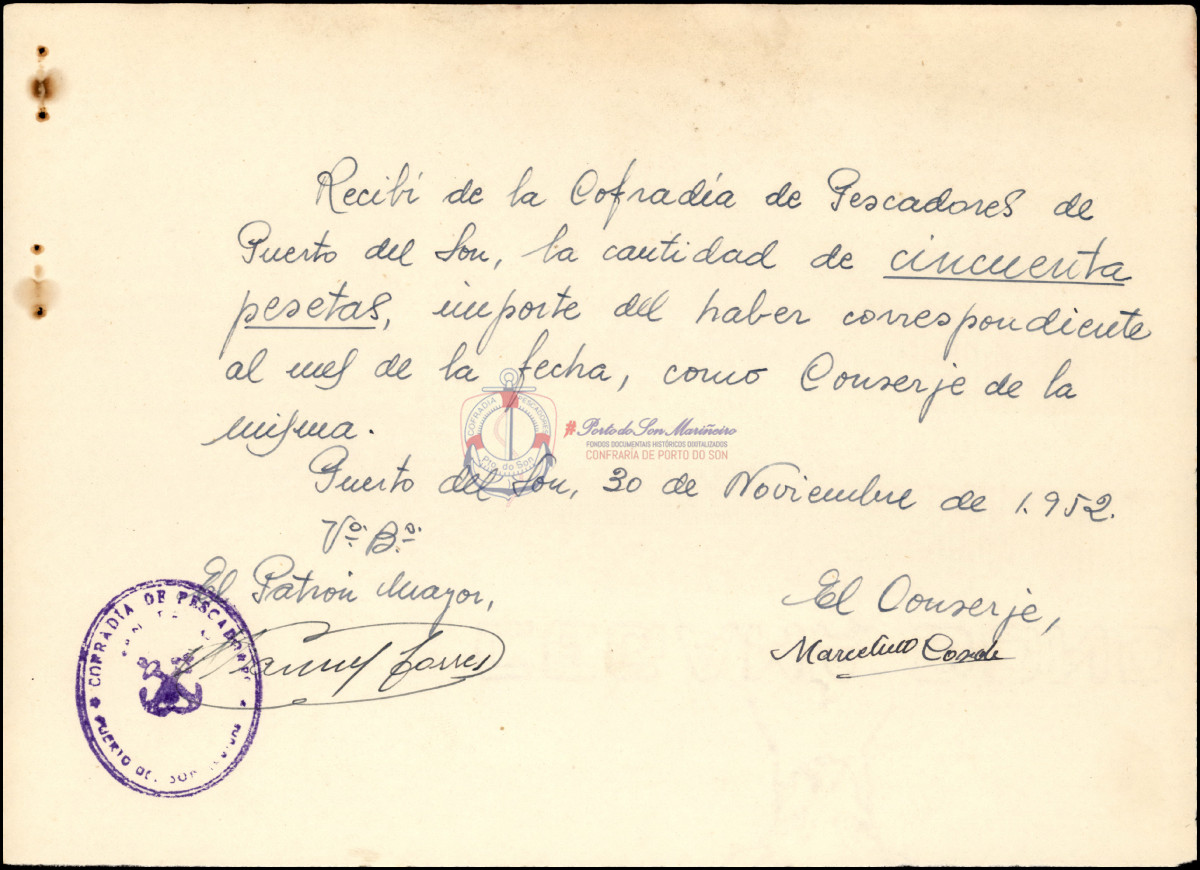 Recibí de la Cofradía de Pescadores de
Puerto del Son, la cantidad de cincuenta
pesetas, importe del haber correspondiente
al mes de la fecha, como Conserje de la
misma.
COFRADIA PESCADORES
Pto. do Son
#Porto do Son Mariñeiro
FONDOS DOCUMENTAIS HISTÓRICOS DIXITALIZADOS
CONFRARÍA DE PORTO DO SON
Puerto del Son, 30 de Noviembre de 1.952.
Vº. Bº.
El Patrón Mayor,
El Conserje,
Torres
Marcelino
COFRADIA DE PESCADORES
PUERTO DEL SON